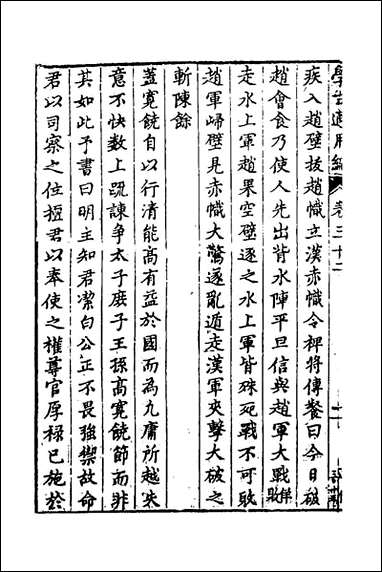 學古適用編 卷三十二 十一
疾入趙壁拔趙幟立漢赤幟令裨將傳餐曰今日破
趙會食乃使人先出背水陣平旦信與趙軍大戰佯敗
走水上軍趙果空壁逐之水上軍皆殊死戰不可敗
趙軍歸壁見赤幟大驚遂亂遁走漢軍夾擊大破之
斬陳餘
蓋寬饒自以行清能高有益於國而為九庸所越失
意不快數上疏諫爭太子庶子王孫高寬饒節而非
其如此予書曰明主知君潔白公正不畏強禦故命
君以司察之住擅君以奉使之權尊官厚祿已施於